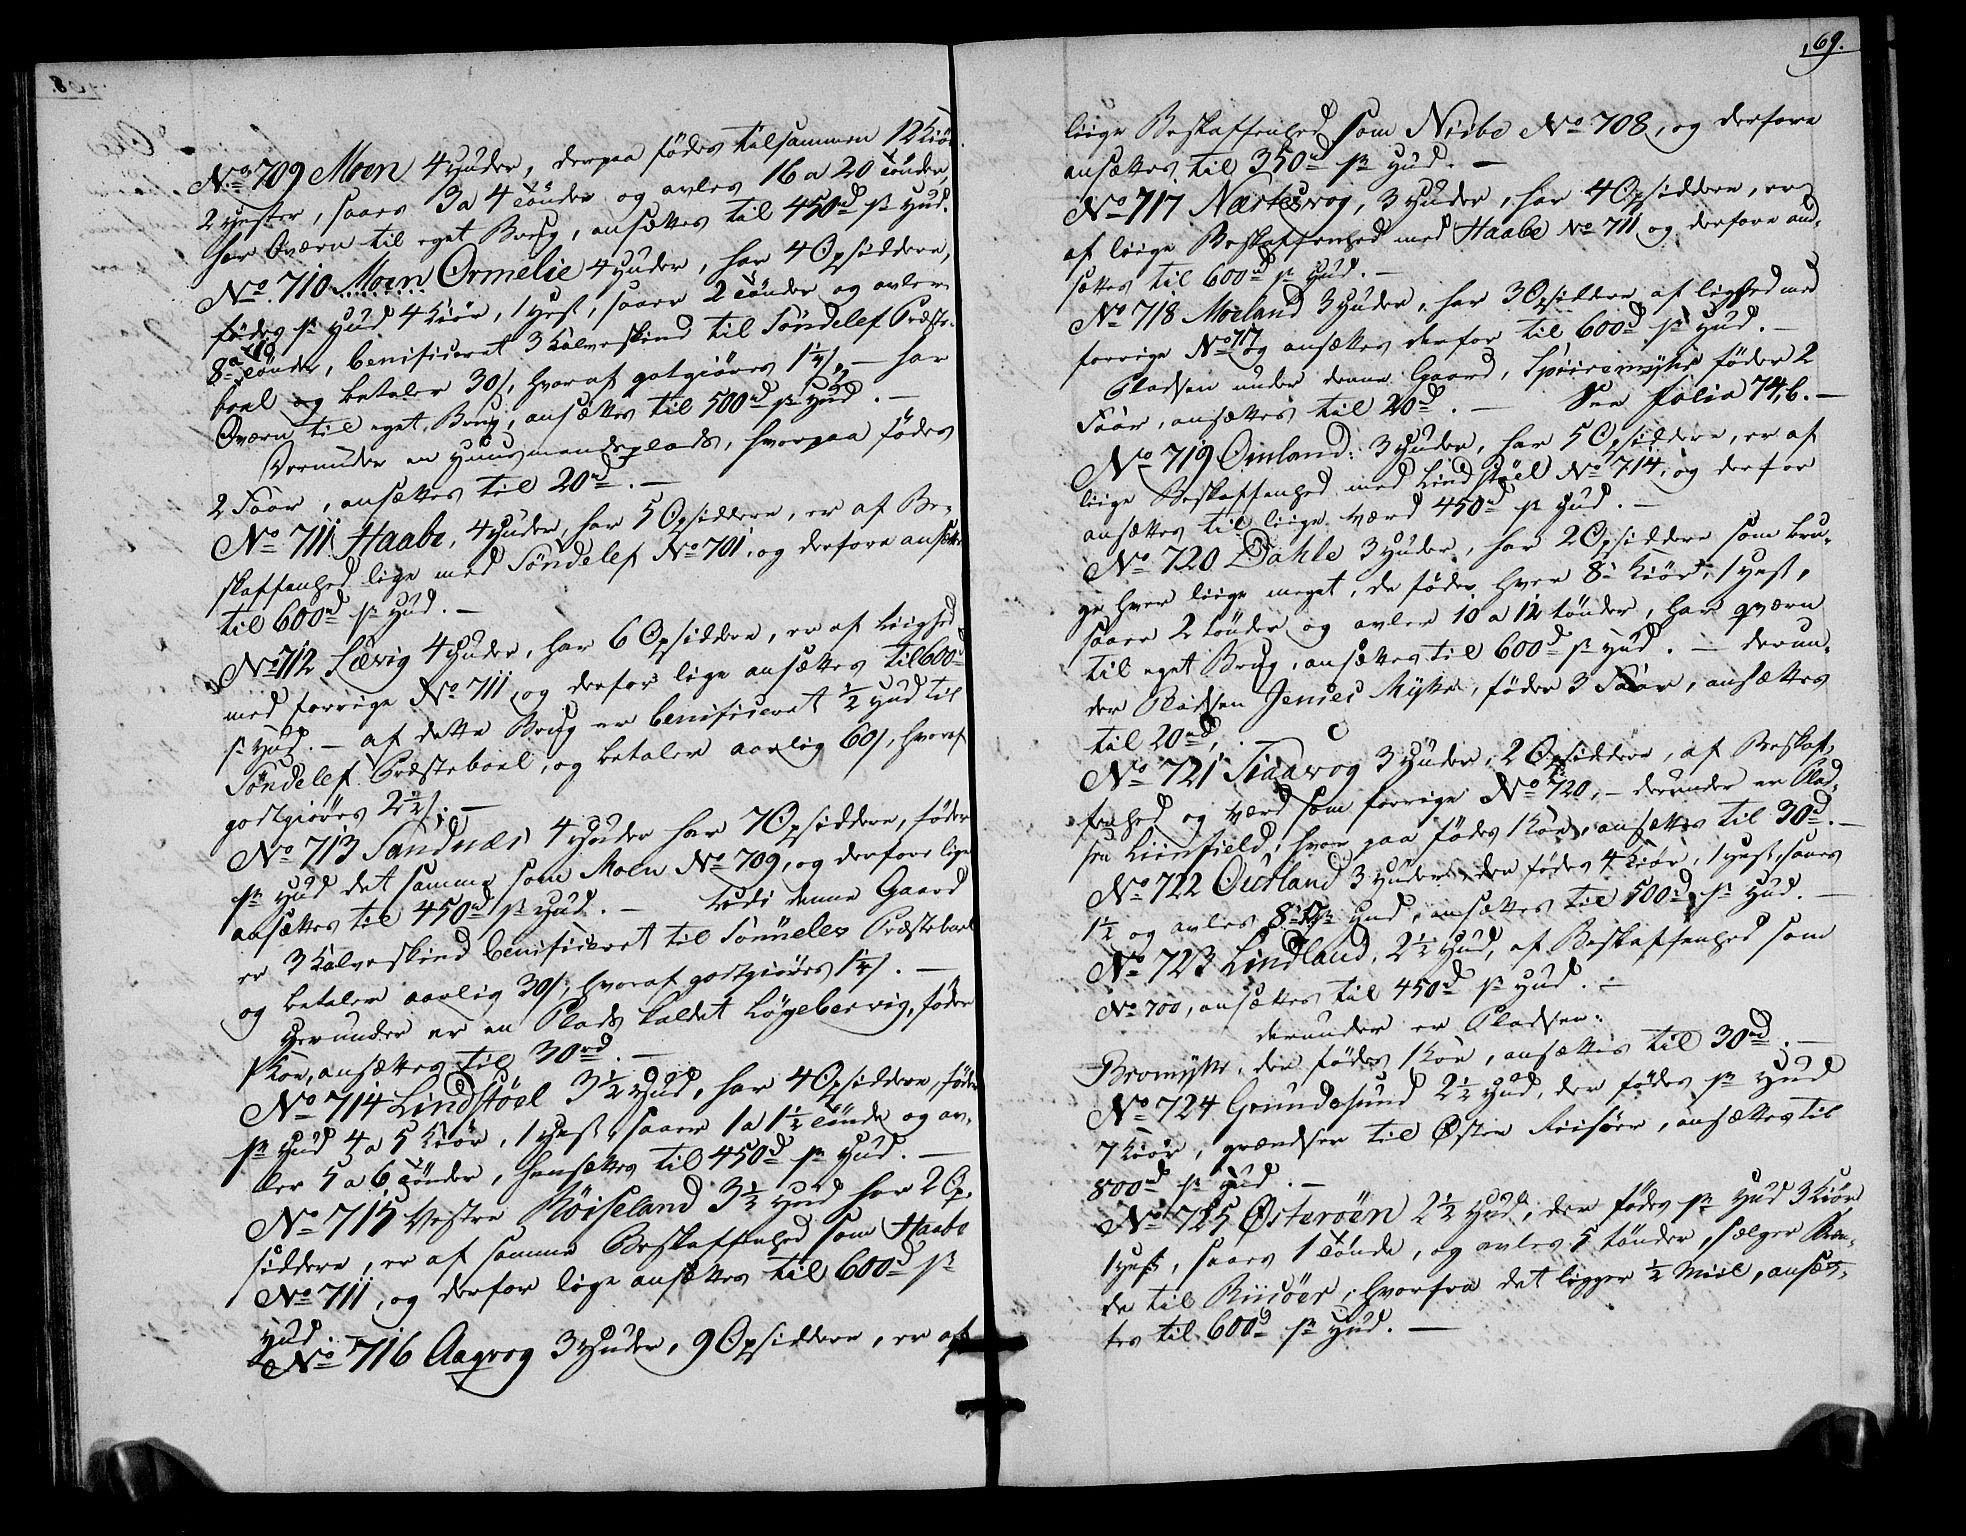 No 709 Moen 4 Huder, derpaa födes tilsammen 12 Kiör
2 Hester, saaes 3 a 4 Tönder og avles 16 a 20 Tönder,
har Qværn til eget Brug, ansættes til 450rd pr Hud.
No. 710 Moen Ormelie 4 Huder, har 4 Opsiddere,
födes pr Hud 4 Kiör, 1 Hest, saaer 2 Tönder og avler
8 a 10 Tönder, benificeret 3 Kalveskind til Söndelef Præste-
boel og betaler 30s, hvoraf godtgiöres 1 1/4s, — har
Qværn til eget Brug, ansættes til 500rd pr Hud. —
Derunder en Huusmandsplads, hvorpaa födes
2 Faar, ansættes til 20rd. —
No 711 Haabe, 4 Huder, har 5 Opsiddere, er af Be-
skaffenhed lige med Söndelef No 701, og derfore ansættes
til 600rd pr Hud. —
No 712 Lævig 4 Huder, har 6 Opsiddere, er af Liighed
med forrige No 711, og derfor lige ansættes til 600rd
pr Hud. — af dette Brug er benificeret 1/2 Hud til
Söndelef Præsteboel, og betaler aarlig 60s, hvoraf
godtgiöres 2 1/2s. —
No 713 Sandnæs 4 Huder har 7 Opsiddere, föder
pr Hud det samme som Moen No 709, og derfore lige
ansættes til 450rd pr Hud. — Udi denne Gaard
er 3 Kalveskind benificeret til Sönnelev Præsteboel
og betaler aarlig 30s, hvoraf godtgiöres 1 1/4s. —
Herunder er en Plads kaldet Lögebervig, föder
1 Koe, ansættes til 30rd. —
No 714 Lindstöel 3 1/2 Hud, har 4 Opsiddere, föder
pr Hud 4 a 5 Kiör, 1 Hest, saaer 1 a 1 1/2 Tönde og av-
ler 5 a 6 Tönder, hensættes til 450rd pr Hud. —
No 715 Vestre Röiseland 3 1/2 Hud har 2 Op-
siddere, er af samme Beskaffenhed som Haabe
No 711, og derfor lige ansættes til 600rd pr
Hud.
No 716 Aagvog 3 Huder, 9 Opsiddere, er af
169.
liige Beskaffenhed som Niibe No 708, og derfore
ansættes til 350rd pr Hud. —
No 717 Næstesvog, 3 Huder, har 4 Opsiddere, er
af liige Beskaffenhed med Haabe No 711 og derfore an-
sættes til 600rd pr Hud. —
No 718 Moeland 3 Huder, har 3 Opsiddere af lighed med
forrige No 717 og ansættes derfor til 600rd pr Hud. —
Pladsen under denne Gaard, Spöiremyhr föder 2
Faar, ansættes til 20rd. — See folio 74,b. —
No 719 Omland: 3 Huder, har 5 Opsiddere, er af
liige Beskaffenhed med Lindstöel No 714, og derfor
ansættes til liige værd 450rd pr Hud. —
No 720 Dahle 3 Huder, har 2 Opsiddere som bru-
ge hver liige meget, de föder hver 8 Kiör, 1 Hest,
saaer 2 tönder og avler 10 a 12 tönder, har qværn
til eget Brug, ansættes til 600rd pr Hud. — derun-
der Pladsen Jenses Myhr, föder 3 Faar, ansættes
til 20rd,
No 721 Fiaavog 3 Huder, 2 Opsiddere, af Beskaf-
fenhed og værd som forrige No 720, — derunder er Plad-
sen Liinfield, hvor paa födes 1 Koe, ansættes til 30rd. —
No 722 Ourland 3 Huder, der födes 4 Kiör, 1 Hest, saaes
1 1/2 og avles 8 T pr Hud, ansættes til 500rd pr Hud. —
No 723 Lindland, 2 1/2 Hud, af Beskaffenhed som
No 700, ansættes til 450rd pr Hud. —
derunder er Pladsen:
Bromyhr, der födes 1 Koe, ansættes til 30rd. —
No 724 Grundesund 2 1/2 Hud, der födes pr Hud
7 Kiör, grændser til Østre Riisöer, ansættes til
800rd pr Hud. —
No 725 Østeröen 2 1/2 Hud, der födes pr Hud 3 Kiör
1 Hest, saaes 1 Tönde, og avles 5 tönder, sælger Bran-
de til Riisöer, hvorfra det ligger 1/2 Miil, ansæt-
tes til 600rd pr Hud. —